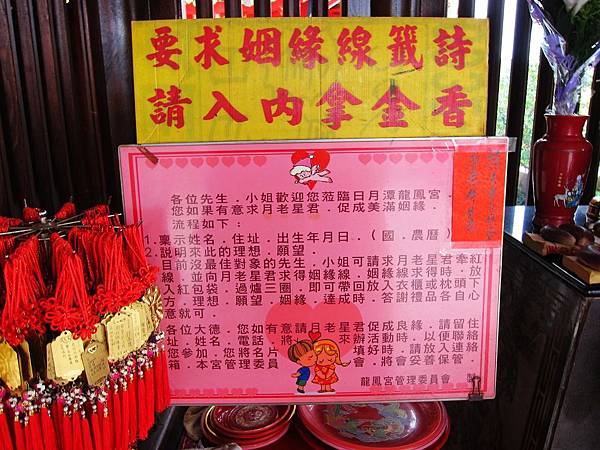 要求姻緣線籤詩
請入內拿金香
各位先生．小姐歡迎您蒞臨日月潭龍鳳宮．
您如果有意求月老星君．促成美滿姻緣．
流程如下：
1.稟示姓名．住址．出生年月日．(國．農曆)
2.説明來此的理想．願望．
目前沒最佳對象的先生．小姐可請求月老星君牽紅
線．並向月老星君求得姻緣線．姻緣線求得時．放
入紅包袋．過爐三圈．即可帶回放入衣櫃或枕頭下
方．理想．願望．姻緣．達成時．答謝禮品各自心
意就可．
各位大德．您如有意請月老星君促成良緣．請留住
址．姓名．電話．將 來辦活動時．以便聯絡
您參加．您將名片 填好時．請放入連絡
箱．本宮管理委員 會．將會妥善保管．
龍鳳宮管理委員會 製